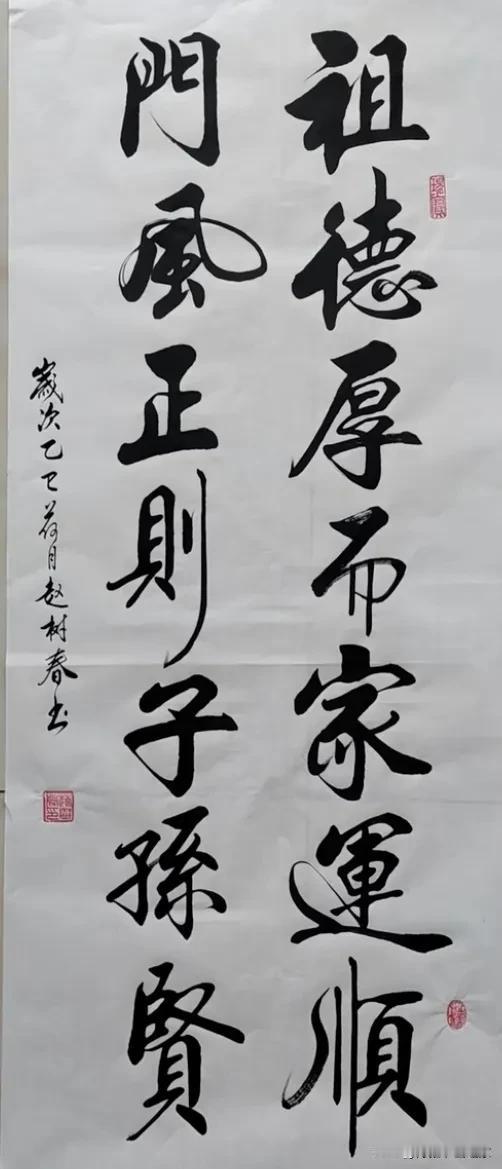 祖德厚而家運順
門風正則子孫賢
歲次乙巳荷月赵树春书